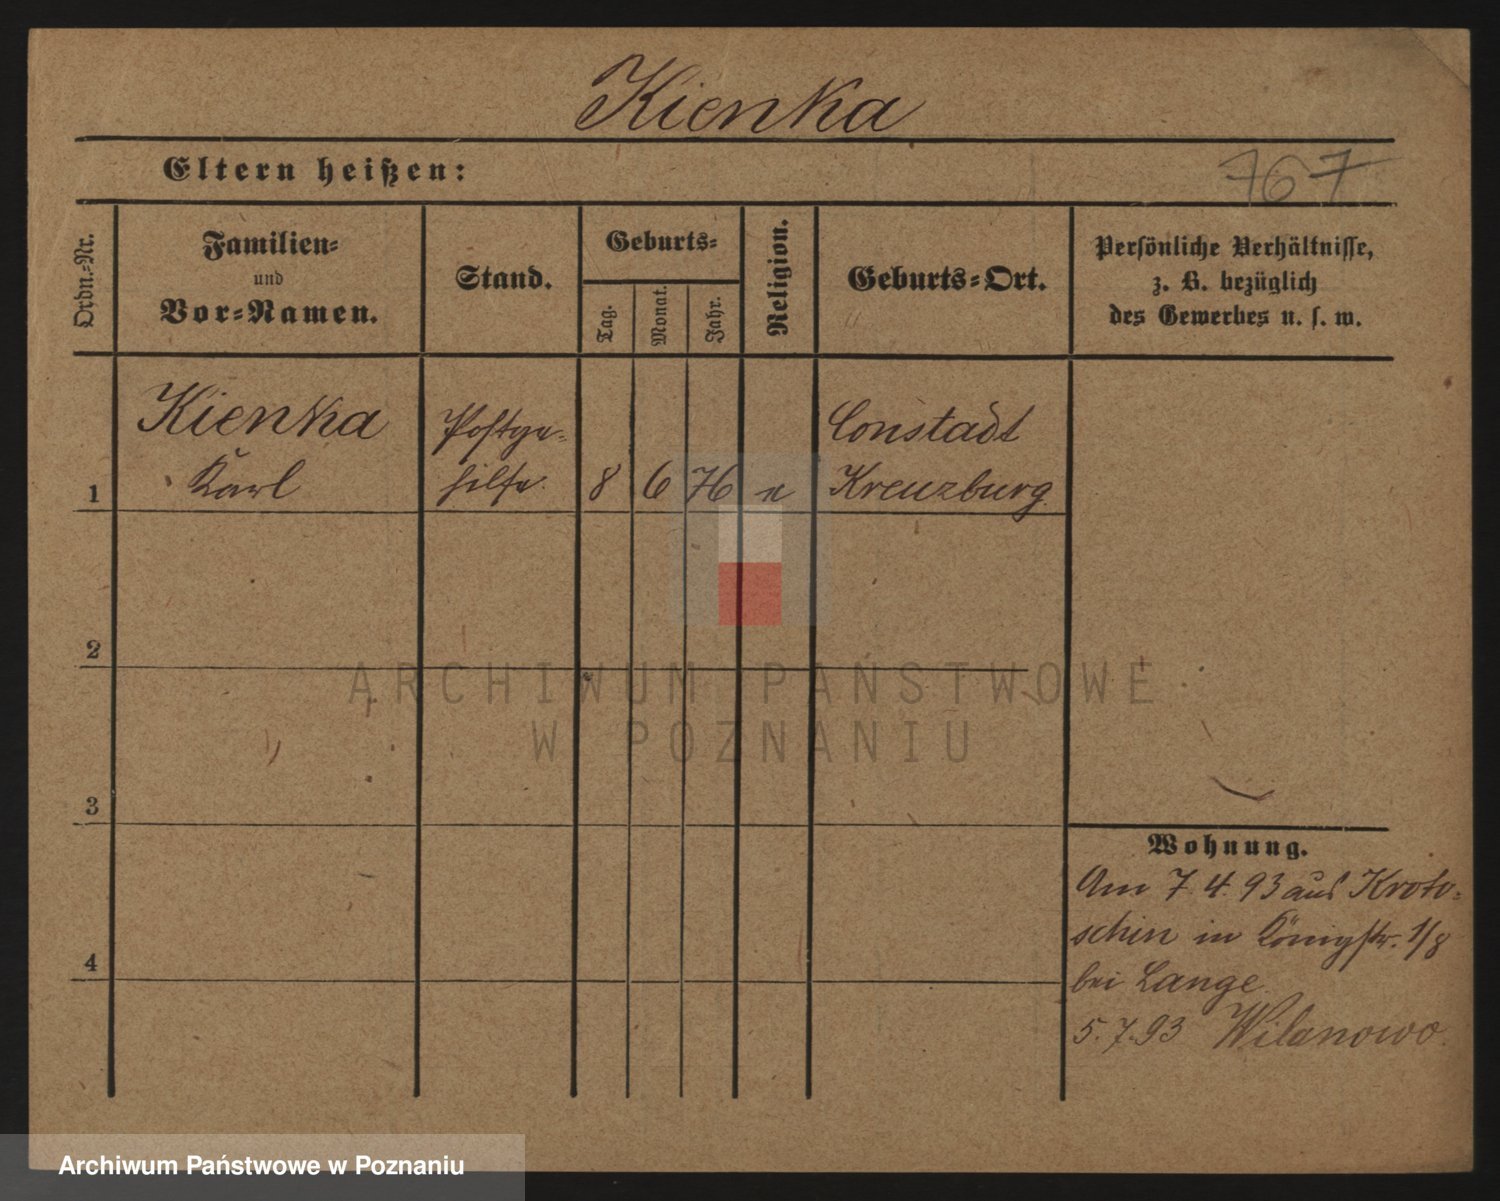 Kienka
Eltern heißen:
767
Ordn.=Nr.
Familien=
und
Vor=Namen.
Stand.
Geburts=
Tag.
Monat.
Jahr.
Religion.
Geburts=Ort.
Persönliche Verhältnisse,
z. B. bezüglich
des Gewerbes u. s. w.
Kienka
Karl
Postge=
hilfe.
8
6
76
e
Constadt
Kreuzburg.
1
2
3
4
ARCHIWUM PAŃSTWOWE
W POZNANIU
Wohnung.
Am 7. 4. 93 aus Kroto=
schin in Königstr. 1/8
bei Lange.
5. 7. 93 Wilanowo.
Archiwum Państwowe w Poznaniu